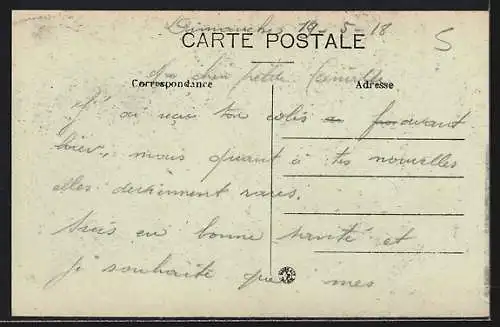 Dimanche 19-5-18
CARTE POSTALE
Ma chère petite Camille
Correspondance
Adresse
J'ai reçu ton colis avant
hier, mais quant à tes nouvelles
elles deviennent rares.
Suis en bonne santé et
je souhaite que mes
5